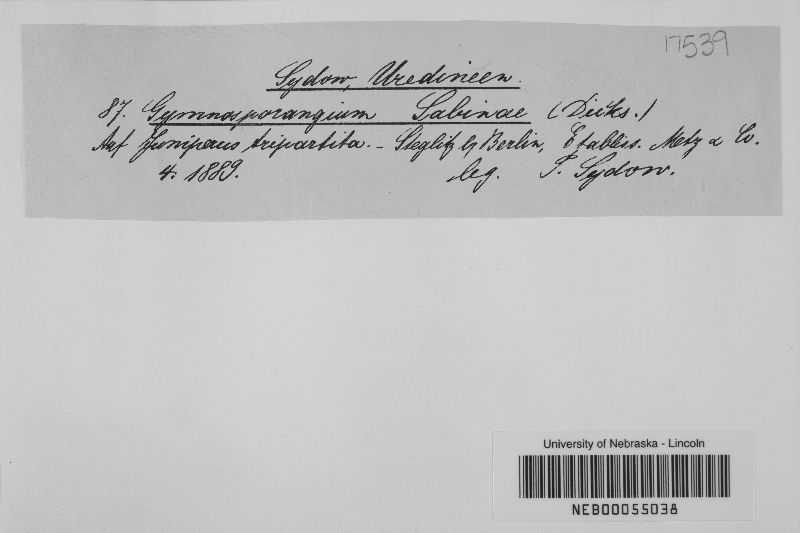 17539
Sydow, Uredineen.
87. Gymnosporangium Sabinae (Dicks.)
Auf Juniperus tripartita. - Steglitz b/ Berlin, Etabliss. Metz & Co.
4. 1889. leg. P. Sydow.
University of Nebraska - Lincoln
NEB00055038